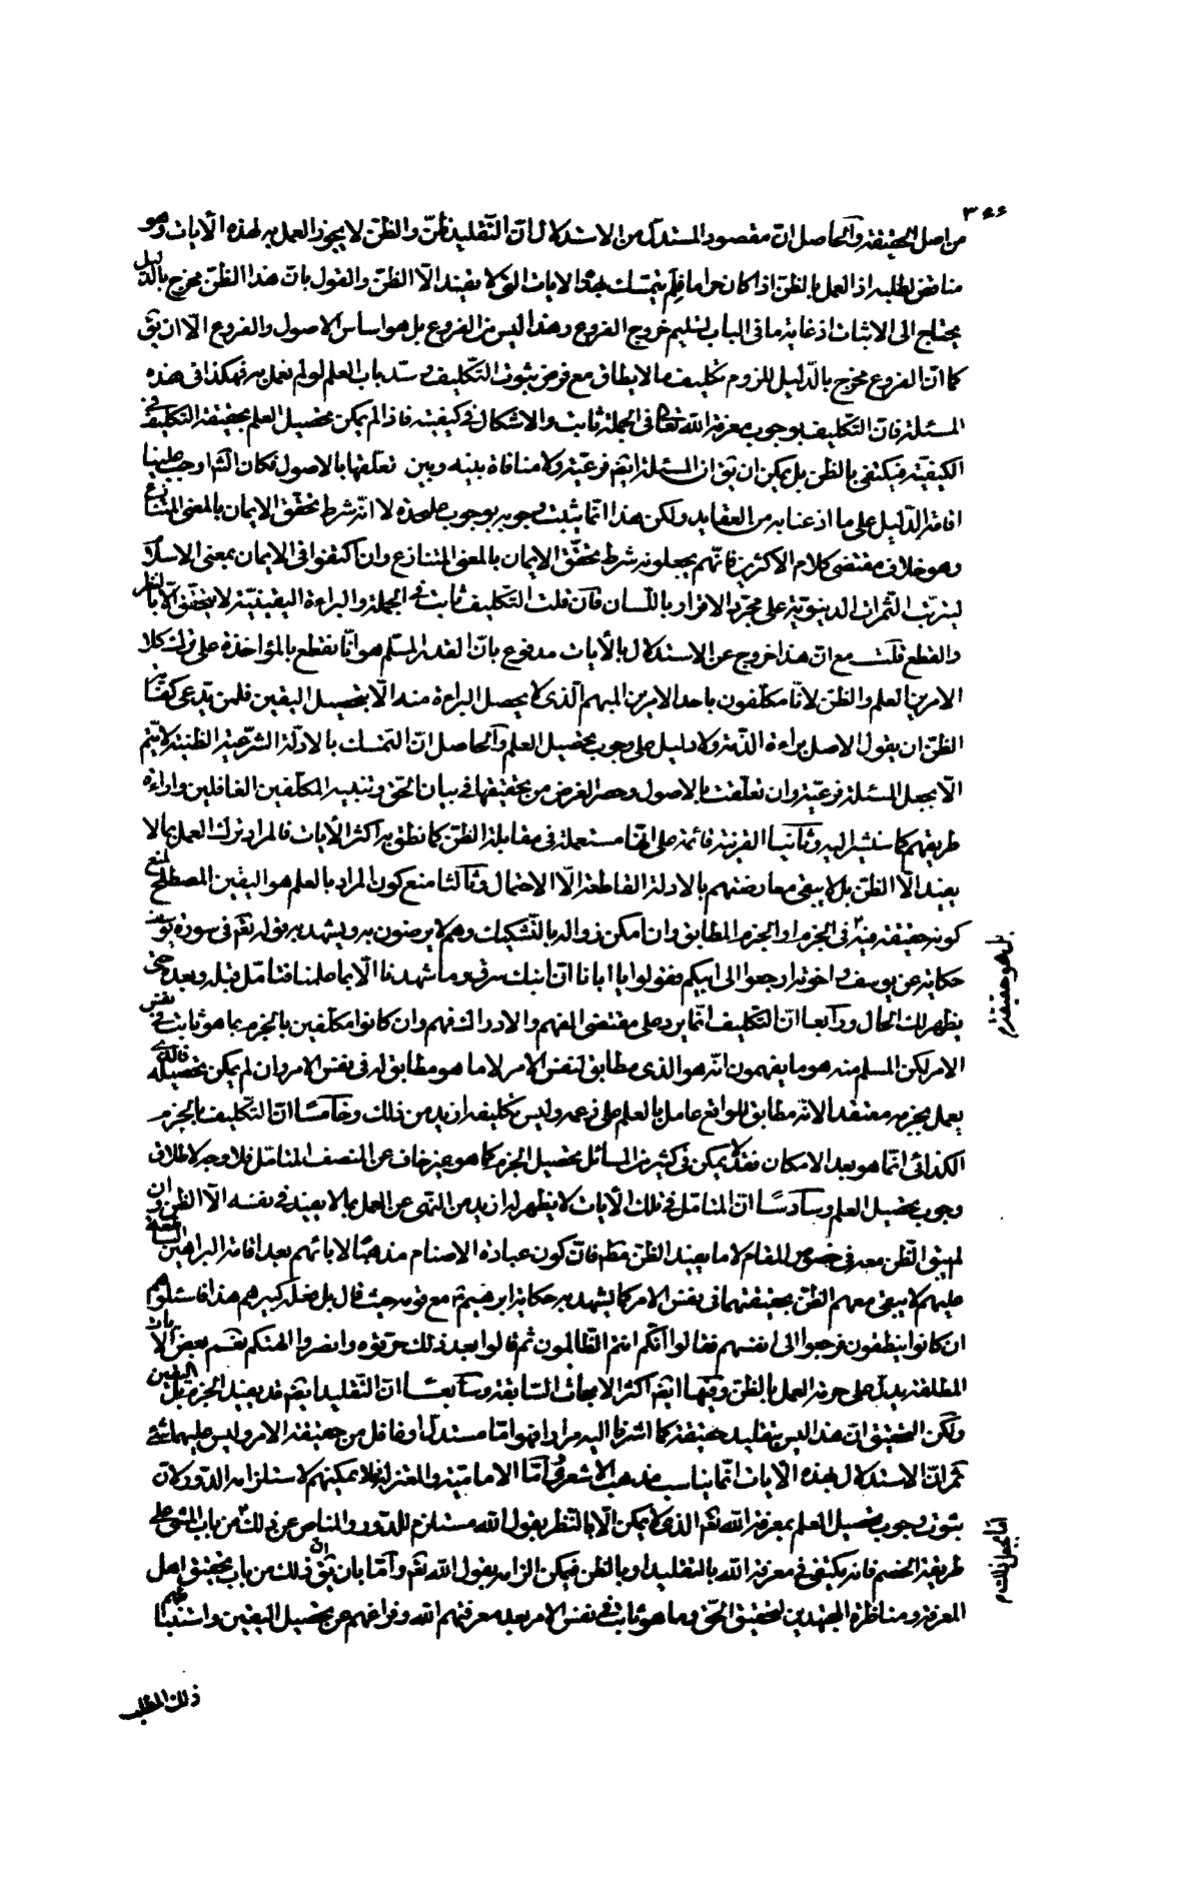 ٣٤٤
من اصل الحقيقة والحاصل ان مقصود المستدل من الاستدلال ان التقليد ظن والظن لا يجوز العمل به لهذه الآيات وهو
مناقض لمطلبه اذ العمل بالظن اذا كان حراما فلم يتمسك بهذه الآيات التى لا يفيد الا الظن والقول بان هذا الظن مخرج بالدليل
يحتاج الى الاثبات اذ غاية ما فى الباب تسليم خروج الفروع وهذا ليس من الفروع بل هو اساس الاصول والفروع الا ان يق
كما ان الفروع مخرج بالدليل للزوم تكليف ما لا يطاق مع فرض ثبوت التكليف وسد باب العلم لو لم نعمل به فهكذا فى هذه
المسئلة فان التكليف بوجوب معرفة الله تعالى فى الجملة ثابت والاشكال فى كيفيته فاذا لم يمكن تحصيل العلم بحقيقة التكليف فى
الكيفية فيكتفى بالظن بل يمكن ان يق ان المسئلة ايضا فرعية ولا منافاة بينه وبين تعلقها بالاصول فكان الشارع اوجب علينا
اقامة الدليل على ما اذعنا به من العقايد ولكن هذا انما يثبت وجوبه بوجوب عليحده لا انه شرط تحقق الايمان بالمعنى المتنازع
وهو خلاف مقتضى كلام الاكثرين فانهم يجعلونه شرط تحقق الايمان بالمعنى المتنازع وان اكتفوا فى الايمان بمعنى الاسلام
ليترتب الثمرات الدنيوية على مجرد الاقرار باللسان فان قلت التكليف ثابت فى الجملة والبراءة اليقينية لا يتحقق الا بالنظر
والقطع قلت مع ان هذا خروج عن الاستدلال بالآيات مدفوع بان القدر المسلم هو انا نقطع بالمؤاخذة على ترك كلا
الامرين العلم والظن لا انا مكلفون باحد الامرين المبهم الذى لا يحصل البراءة منه الا بتحصيل اليقين فلمن يدعى كفاية
الظن ان يقول الاصل براءة الذمة ولا دليل على وجوب تحصيل العلم والحاصل ان التمسك بالادلة الشرعية الظنية لا يتم
الا بجعل المسئلة فرعية وان تعلقت بالاصول وحصر الغرض من تحقيقها فى بيان الحق وتنبيه المكلفين الغافلين واراءة
طريقهم كما سنشير اليه وثانيا القرينة قائمة على انها مستعملة فى مقابلة الظن كما نطق به اكثر الآيات فالمراد ترك العمل بما لا
يفيد الا الظن بل لا يبقى معارضتهم بالادلة القاطعة الا الاحتمال وثالثا منع كون المراد بالعلم هو اليقين المصطلح لمنع
كونه حقيقة فيه بل هو حقيقة فى الجزم او الجزم المطابق وان امكن زواله بالتشكيك وهم لا يرضون به ويشهد به قوله تعم فى سورة يوسف
حكاية عن يوسف واخوته ارجعوا الى ابيكم فقولوا يا ابانا ان ابنك سرق وما شهدنا الا بما علمنا فتامل قبله وبعده حتى
يظهر لك الحال ورابعا ان التكليف انما يرد على مقتضى الفهم والادراك فهم وان كانوا مكلفين بالجزم بما هو ثابت فى نفس
الامر لكن المسلم منه هو ما يفهمون انه هو الذى مطابق لنفس الامر لا ما هو مطابق له فى نفس الامر وان لم يمكن تحصيله فالذى
يعمل بجزمه معتقدا لانه مطابق للواقع عامل بالعلم على زعمه وليس تكليفه ازيد من ذلك وخامسا ان التكليف بالجزم
الكذائى انما هو بعد الامكان فقد لا يمكن فى كثير من المسائل تحصيل الجزم كما هو غير خاف عن المنصف المتامل فلا وجه لاطلاق
وجوب تحصيل العلم وسادسا ان المتامل فى تلك الآيات لا يظهر له ازيد من النهى عن العمل بما لا يفيد فى نفسه الا الظن وان
لم يبق الظن معه فى خصوص المقام لا ما يفيد الظن مطم فان كون عبادة الاصنام مذهبا لابائهم بعد اقامة البراهين
عليهم لا يبقى معهم الظن بحقيقتها فى نفس الامر كما يشهد به حكاية ابرهيم مع قومه حيث قال بل فعله كبيرهم هذا فاسئلوهم
ان كانوا ينطقون فرجعوا الى انفسهم فقالوا انكم انتم الظالمون ثم قالوا بعد ذلك حرقوه وانصروا الهتكم نعم بعض الآيات
المطلقة يدل على حرمة العمل بالظن وفيها ايضا اكثر الابحاث السابقة وسابعا ان التقليد ايضا قد يفيد الجزم بل اليقين
ولكن التحقيق ان هذا ليس بتقليد حقيقة كما اشرنا اليه مرارا فهو اما مستدل او غافل من حقيقة الامر وليس عليهما شئ
ثم ان الاستدلال بهذه الآيات انما يناسب مذهب الاشعرى واما الامامية والمعتزلة فلا يمكنهم لاستلزامه الدور لان
ثبوت وجوب تحصيل العلم بمعرفة الله تعم الذى لا يمكن الا بالنظر بقول الله مستلزم للدور والمناص عن ذلك اما بجعل ذلك من باب المشى على
طريقة الخصم فانه يكتفى فى معرفة الله بالتقليد او بالظن فيمكن الزامه بقول الله تعم واما بان يق ان ذلك من باب تحقيق اهل
المعرفة ومناظرة المجتهدين لتحقيق الحق وما هو ثابت فى نفس الامر بعد معرفتهم الله وفراغهم عن تحصيل اليقين واستنباطهم
بل هو حقيقة م
اما بجعل ذلك م
ذلك المطلب